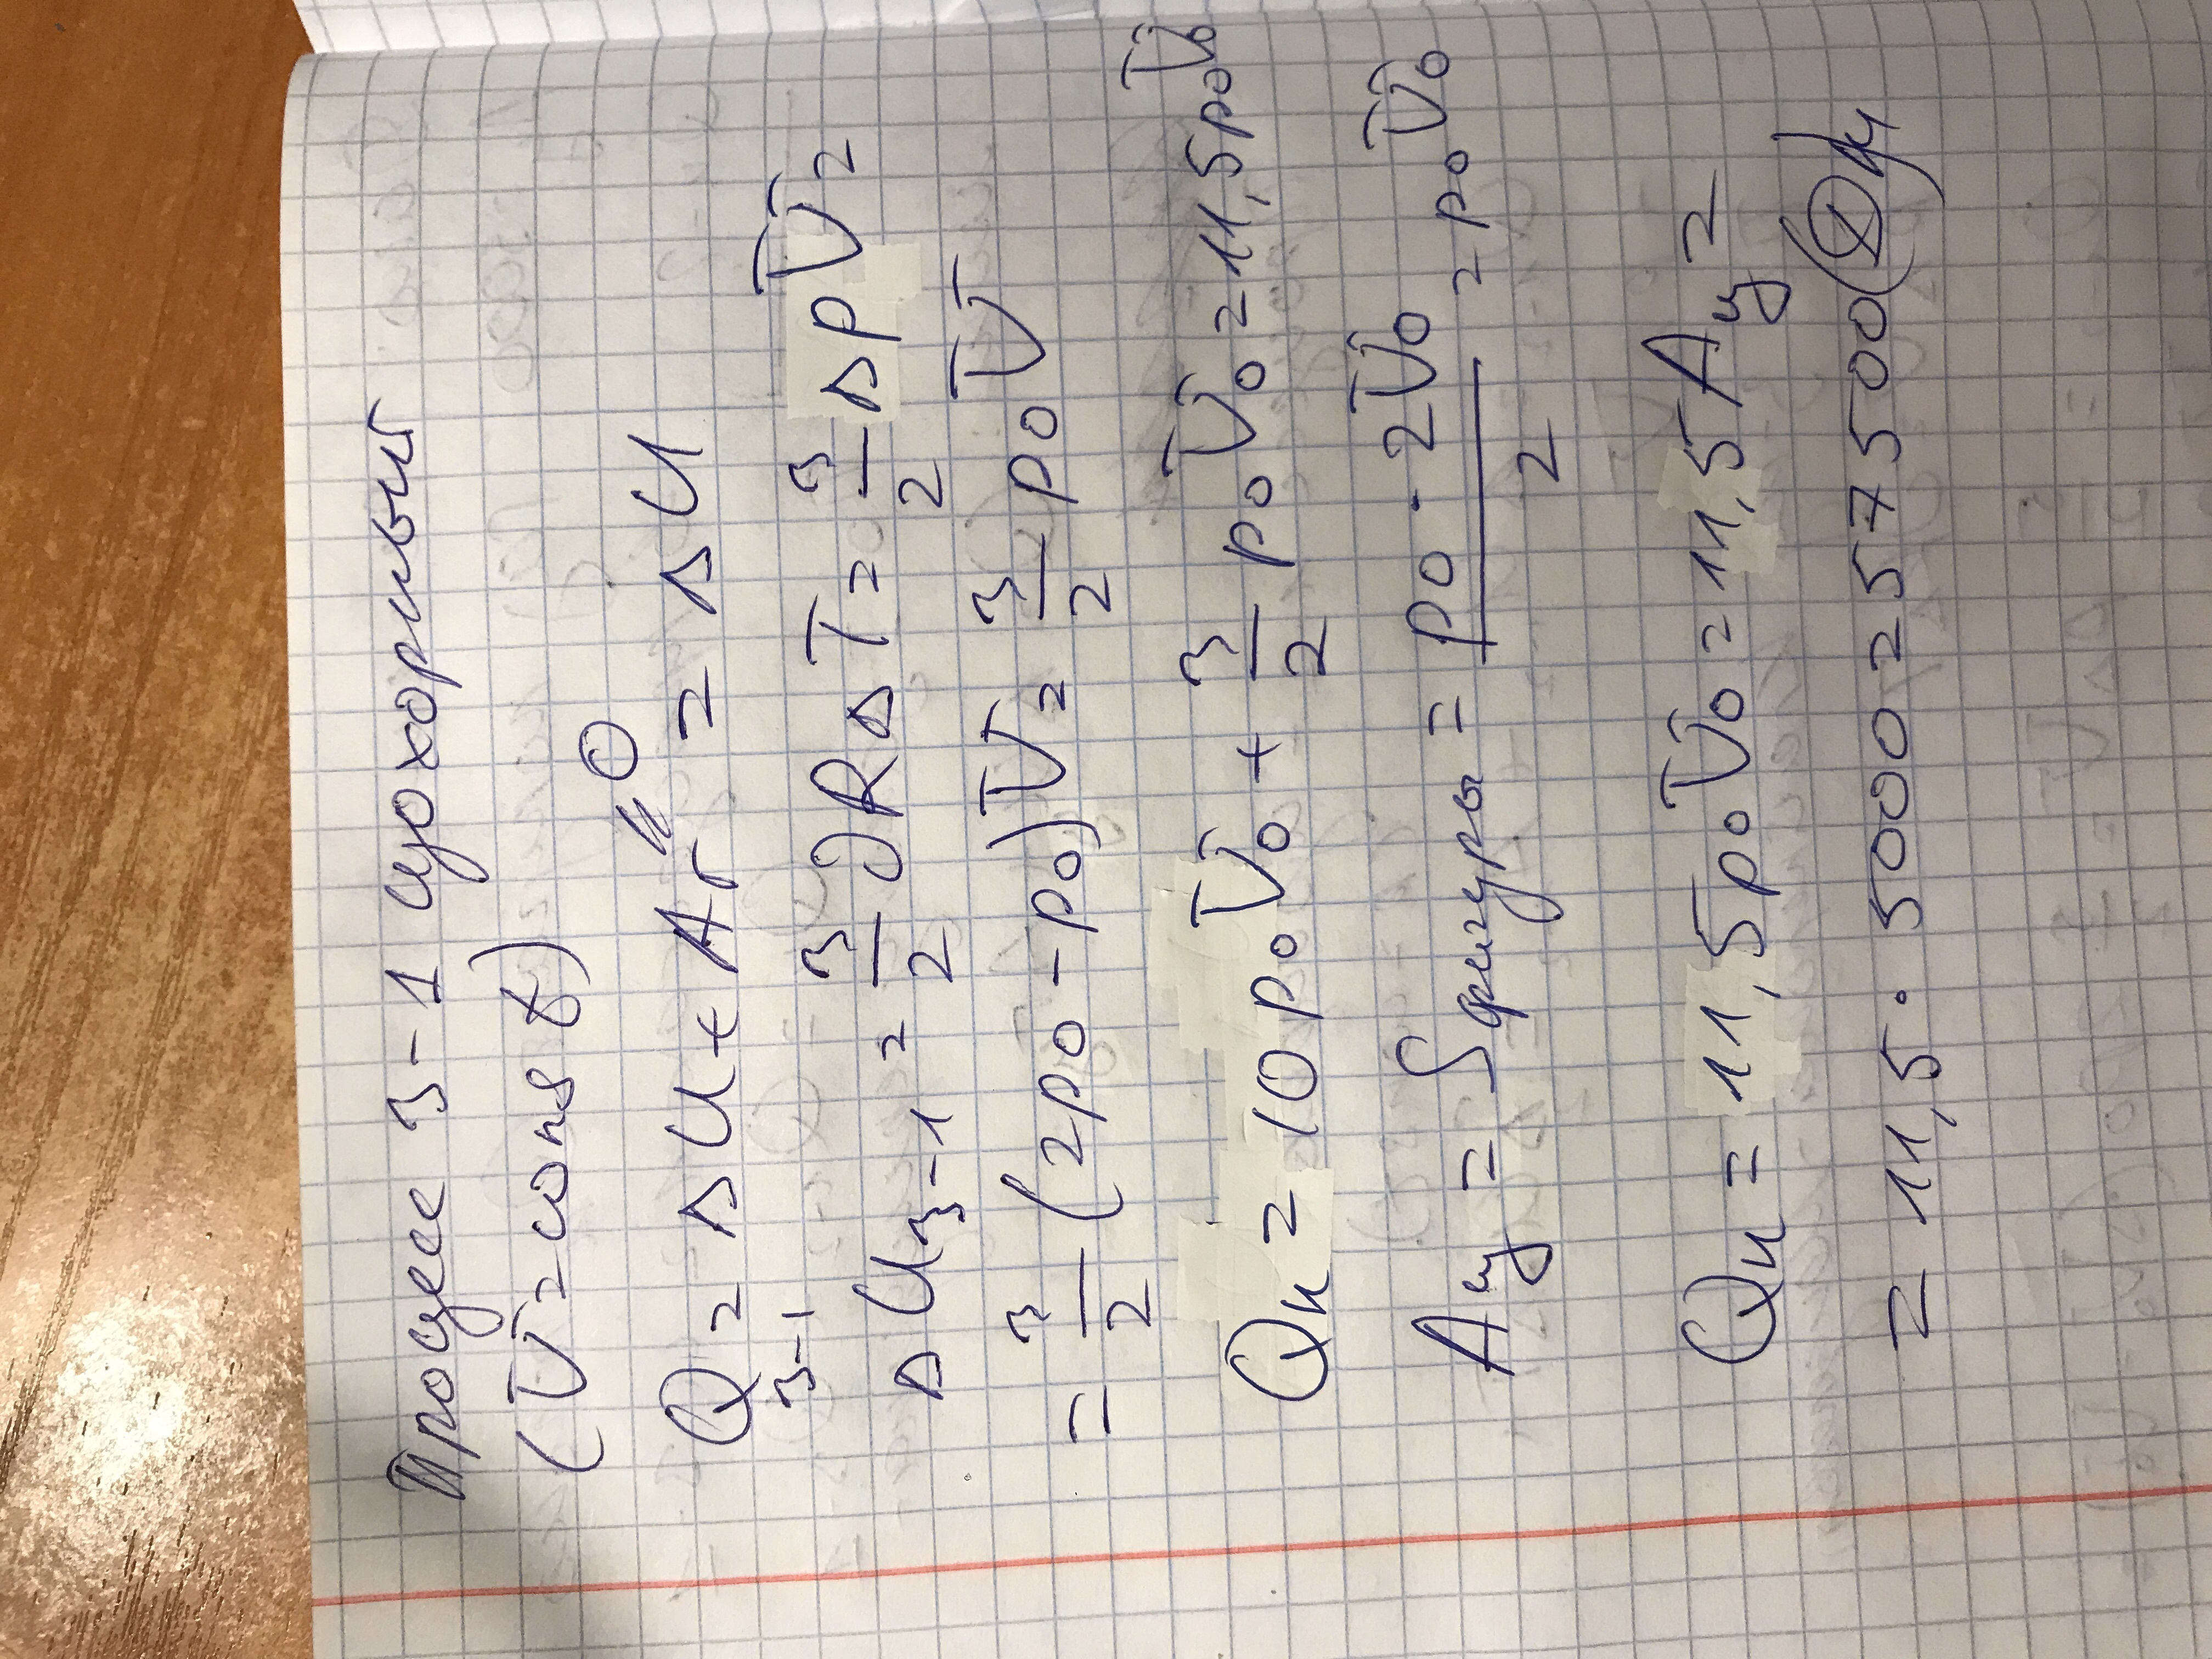 Процесс 3-1 изохорный
(V = const)
Q₃₋₁ = ΔU + Aг = ΔU
" 0
ΔU₃₋₁ = 3/2 νRΔT = 3/2 ΔpV =
= 3/2 (2p₀ - p₀)V = 3/2 p₀V
Qн = 10p₀V₀ + 3/2 p₀V₀ = 11,5p₀V₀
Aц = Sфигуры = p₀ · 2V₀ / 2 = p₀V₀
Qн = 11,5p₀V₀ = 11,5Aц =
= 11,5 · 5000 = 57500 (Дж)